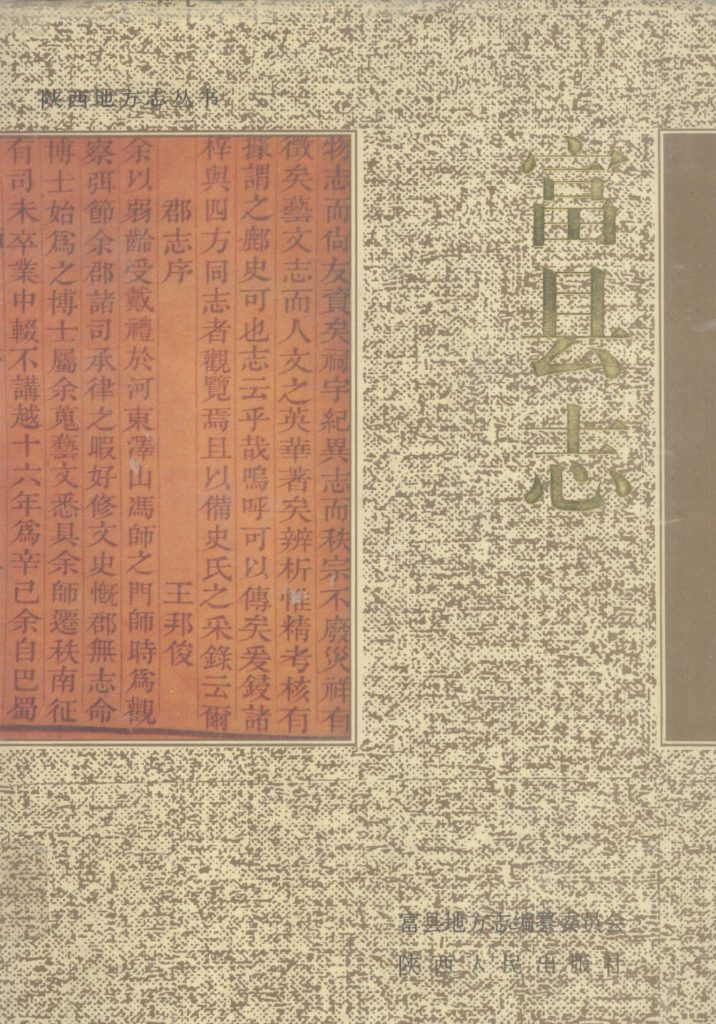 陕西地方志丛书
富县志
物志而尚友資矣祠宇紀異志而秩宗不廢災祥有
徵矣藝文志而人文之英華著矣辨析惟精考核有
據謂之鄜史可也志云乎哉嗚呼可以傳矣爰鋟諸
梓與四方同志者觀覽焉且以備史氏之采錄云爾
郡志序 王邦俊
余以弱齡受戴禮於河東澤山馮師之門師時爲觀
察弭節余郡諸司承律之暇好修文史慨郡無志命
博士始爲之博士屬余蒐藝文悉具余師遷秩南征
有司未卒業中輟不講越十六年爲辛己余自巴蜀
富县地方志编纂委员会
陕西人民出版社